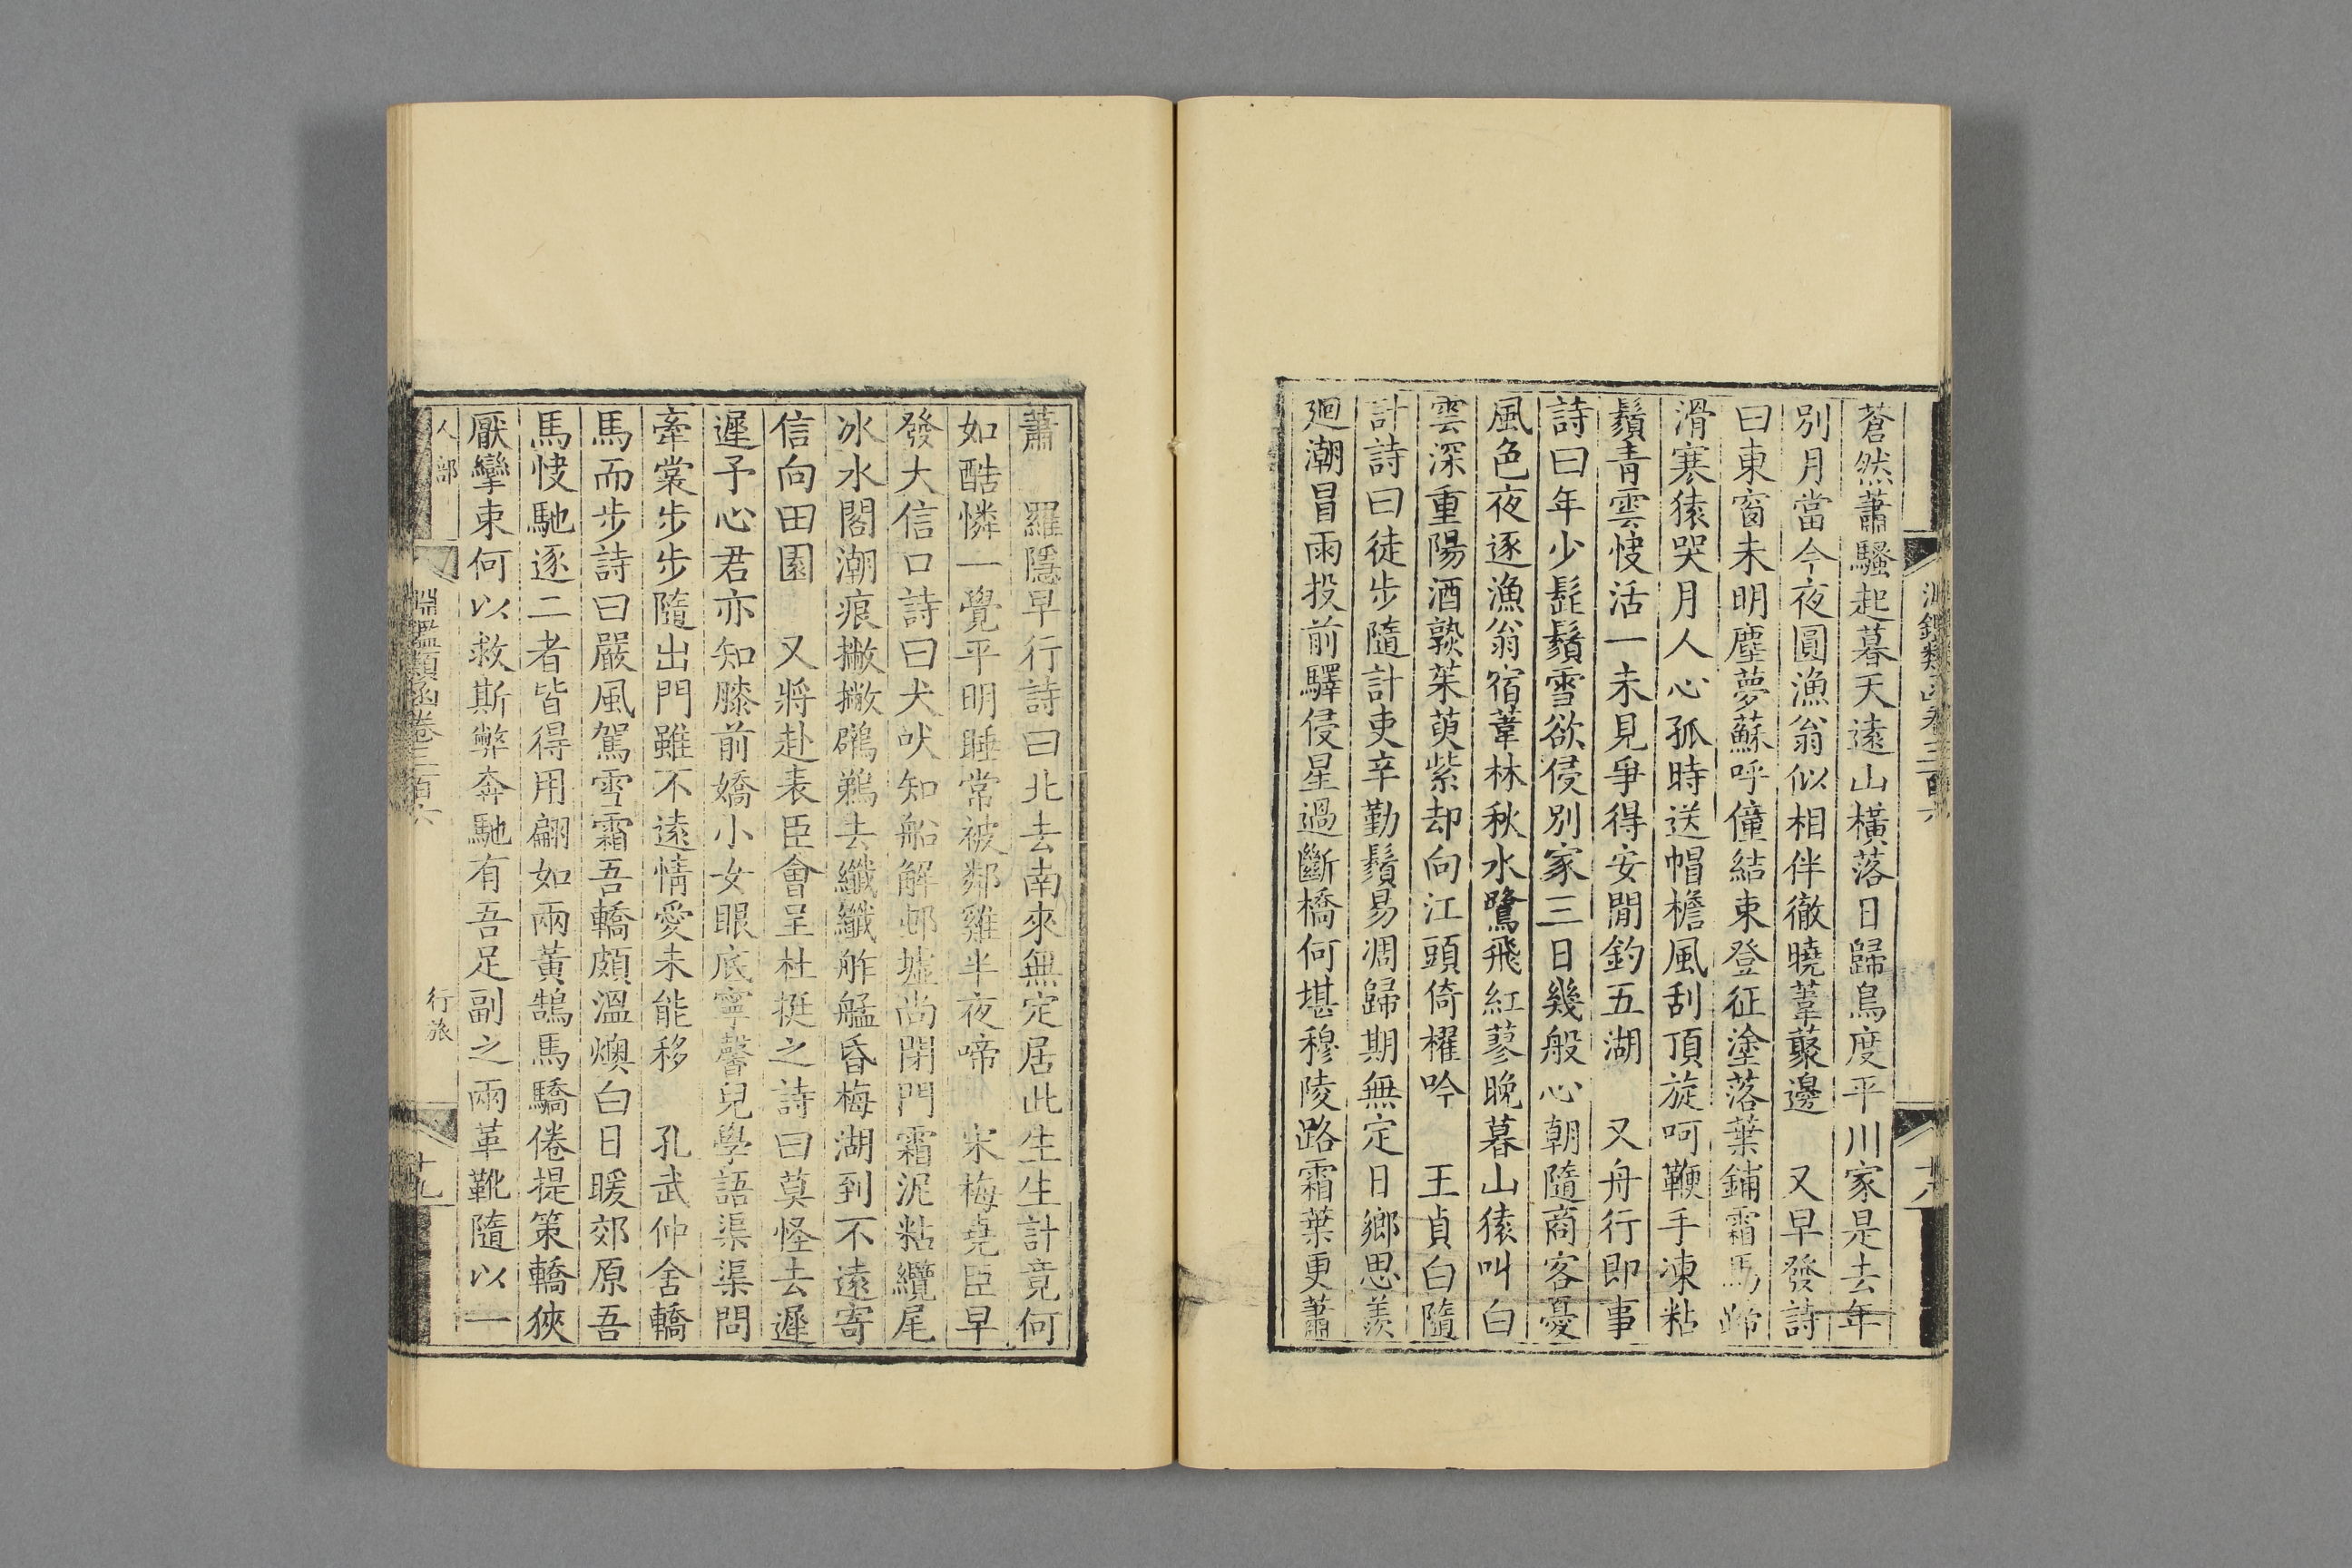 淵鑑類函卷三百六
十八
蒼然蕭騷起暮天遠山橫落日歸鳥度平川家是去年
別月當今夜圓漁翁似相伴徹曉葦藂邊　又早發詩
曰東窗未明塵夢蘇呼僮結束登征塗落葉鋪霜馬蹄
滑寒猿哭月人心孤時送帽檐風刮頂旋呵鞭手凍粘
鬚青雲快活一未見爭得安閒釣五湖　又舟行即事
詩曰年少髭鬚雪欲侵別家三日幾般心朝隨商客憂
風色夜逐漁翁宿葦林秋水鷺飛紅蓼晚暮山猿叫白
雲深重陽酒熟茱萸紫却向江頭倚櫂吟　王貞白隨
計詩曰徒步隨計吏辛勤鬚易凋歸期無定日鄉思羨
廻潮冒雨投前驛侵星過斷橋何堪穆陵路霜葉更蕭
蕭　羅隱早行詩曰北去南來無定居此生生計竟何
如酷憐一覺平明睡常被鄰雞半夜啼　宋梅堯臣早
發大信口詩曰犬吠知船解邨墟尚閉門霜泥粘纜尾
冰水閣潮痕撇撇鸊鵜去纖纖舴艋昏梅湖到不遠寄
信向田園　又將赴表臣會呈杜挺之詩曰莫怪去遲
遲予心君亦知膝前嬌小女眼底寧馨兒學語渠渠問
牽裳步步隨出門雖不遠情愛未能移　孔武仲舍轎
馬而步詩曰嚴風駕雪霜吾轎頗溫燠白日暖郊原吾
馬快馳逐二者皆得用翩如兩黃鵠馬驕倦提策轎狹
厭攣束何以救斯弊奔馳有吾足副之兩革靴隨以一
人部
淵鑑類函卷三百六
行旅
十九